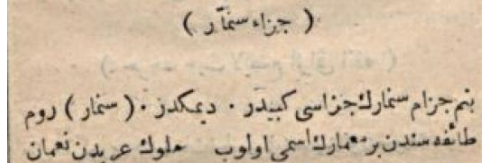 ( جزاء سنمار )
بنم جزام سنمارك جزاسی كبیدر · دیمكدر · ( سنمار ) روم
طائفه سندن بر معمارك اسمی اولوب ملوك عربدن نعمان